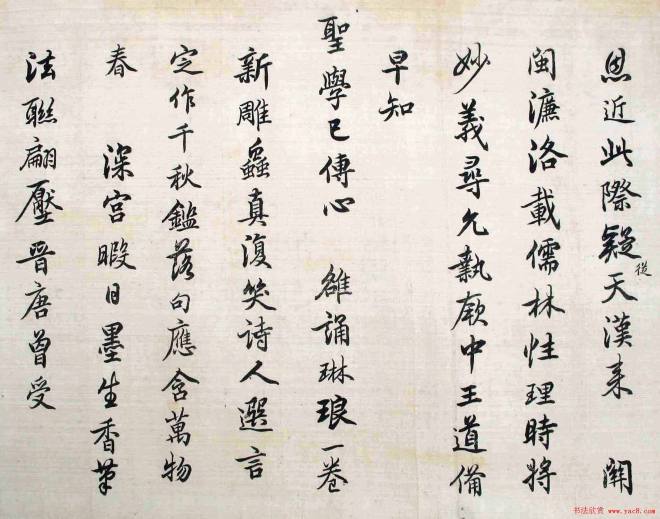 恩近此際疑從天漢来　關
閩濂洛載儒林性理時將
妙義尋允執厥中王道備
早知
聖學已傳心　雒誦琳琅一卷
新雕蟲真復笑詩人選言
定作千秋鑑落句應含萬物
春　深宮暇日墨生香筆
法聯翩壓晉唐曾受
书法欣赏 www.yac8.com